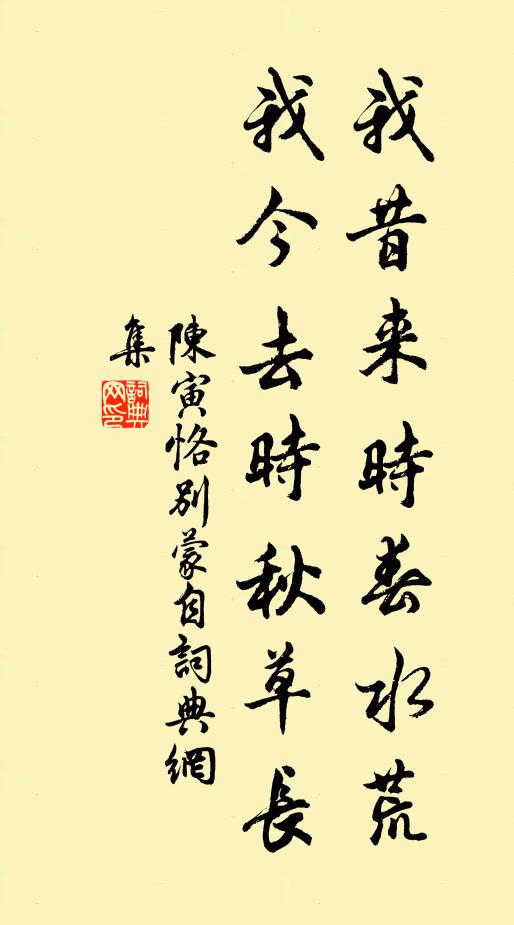 我昔来時春水荒
我今去時秋草長
陳寅恪別蒙自詞典網
集
詞典網印